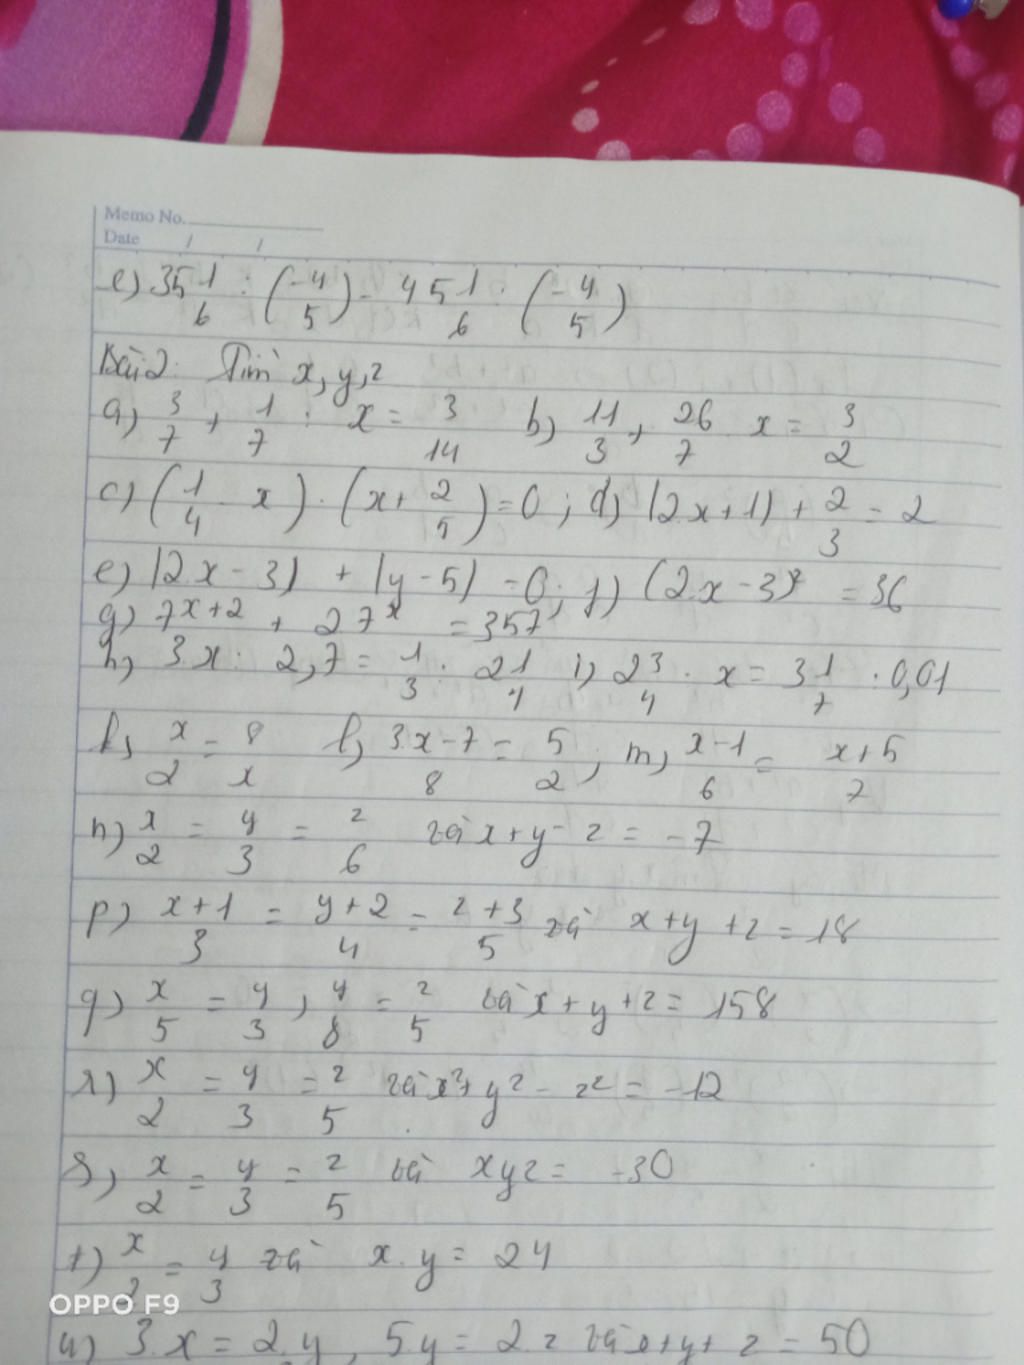 Memo No.
Date / /
e) 35 1/6 : (-4/5) - 45 1/6 : (-4/5)
Bài 2: Tìm x, y, z
a) 3/7 + 1/7 : x = 3/14 b) 11/3 + 26/7 x = 3/2
c) (1/4 - x) . (x + 2/5) = 0 ; d) |2x+1| + 2/3 = 2
e) |2x - 3| + |y - 5| = 0 ; f) (2x - 3)² = 36
g) 7^(x+2) + 2 7^x = 357
h) 3x : 2,7 = 1/3 : 2 1/4 i) 2 3/4 . x = 3 1/7 : 0,01
k) x/2 = 8/x l) 3.x-7/8 = 5/2 ; m) x-1/6 = x+5/7
n) x/2 = y/3 = z/6 và x + y - z = -7
p) x+1/3 = y+2/4 = z+3/5 và x + y + z = 18
q) x/5 = y/3 , y/8 = z/5 và x + y + z = 158
r) x/2 = y/3 = z/5 và x² + y² - z² = -12
s) x/2 = y/3 = z/5 và xyz = -30
t) x/2 = y/3 và x.y = 24
OPPO F9
u) 3.x = 2.y , 5y = 2.z và x + y + z = 50